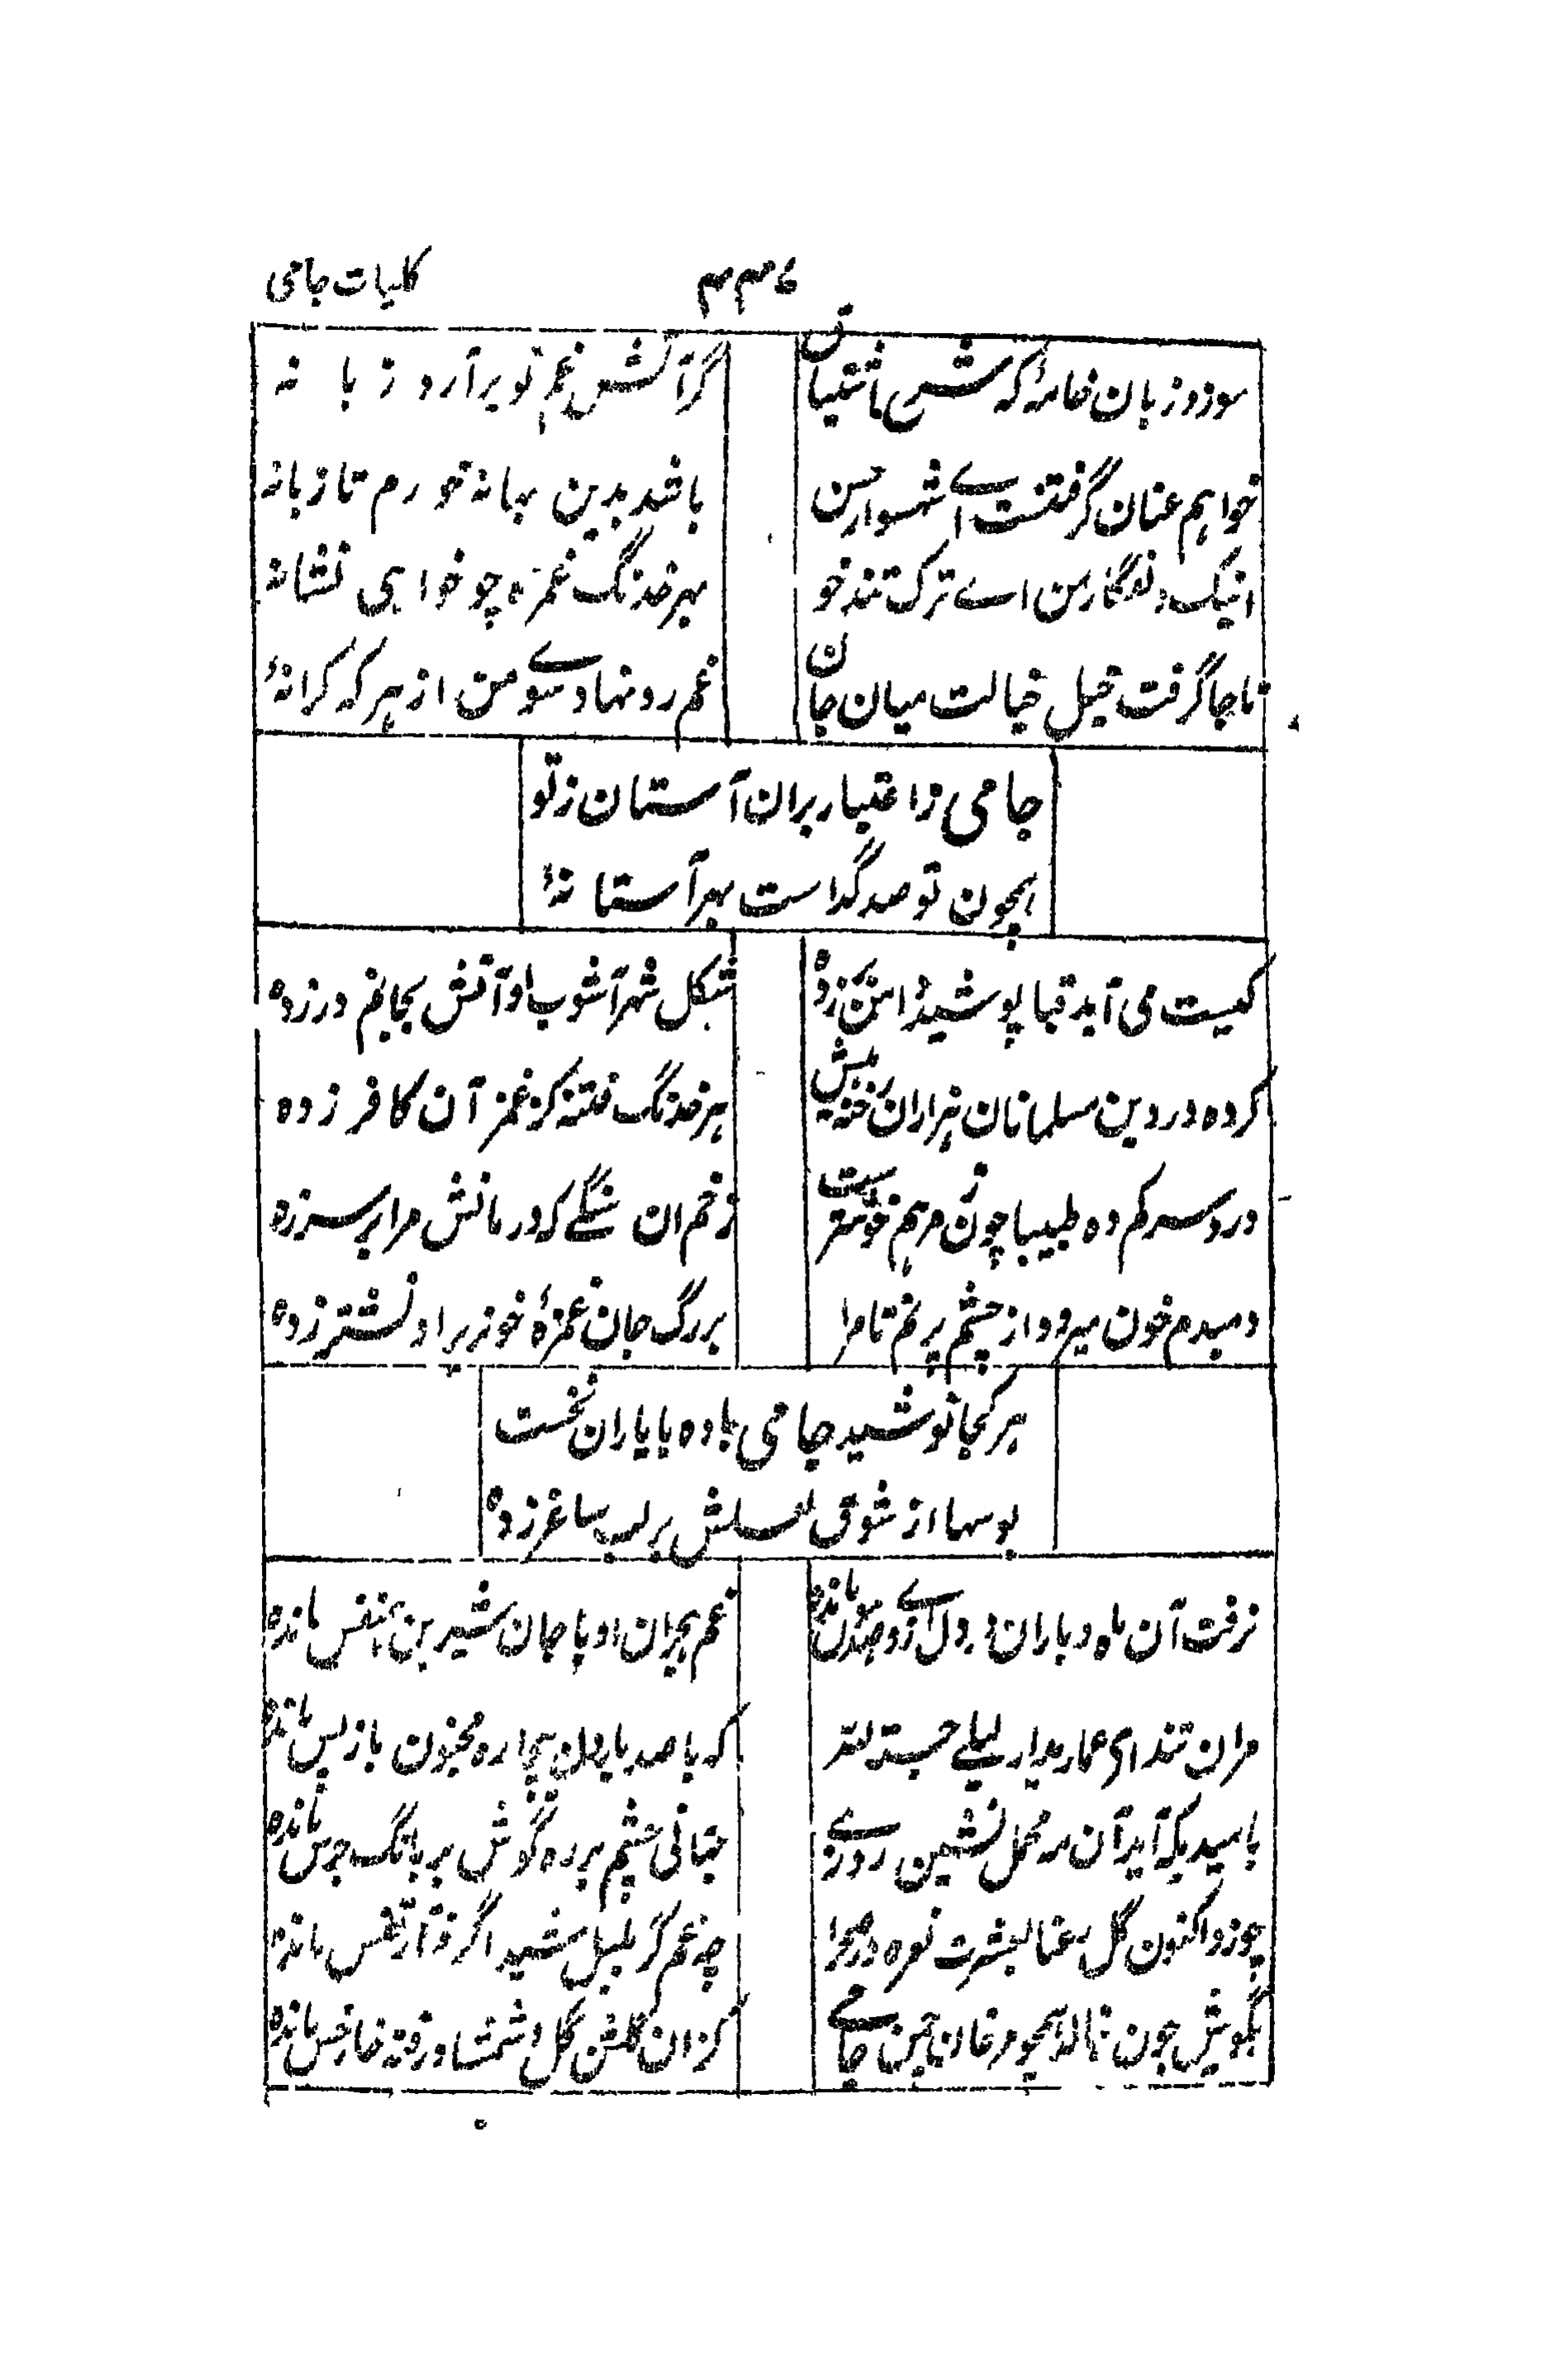 کلیات جامی
۴۳۶
سوزد زبان خامه که شرح اشتیاق
گر آتش غم تو برآرد زبانه
خواهم عنان گرفتنت اے شهسوار حسن
باشد بدین بهانه خورم تازبانه
اینک دل فگار من اے ترک تند خو
بهر خدنگ غمزه چو خواهی نشانه
تا جا گرفت خیل خیالت میان جان
غم رو نهاد سوے من از هر کرانهٔ
جامی مزا عتبار بران آستان ز تو
همچون تو صد گداست بهر آستانهٔ
کیست می آید قبا پوشیده دامن بر زده
شکل شهر آشوب او آتش بجانم در زده
کرده در دین مسلمانان هزاران رخنه بیش
هر خدنگ فتنه کز غمز آن کافر زده
درد سر کم ده طبیبا چون ز مرهم خوشترست
زخم ان سنگے که در مانش مرا بر سر زده
دمبدم خون میرود از چشم پر نم تا مرا
بر رگ جان غمزهٔ خونریز او نشتر زده
هر کجا نوشید جامی باده با یاران نخست
بوسها از شوق لعلش بر لب ساغر زده
برفت آن ماه و یاران در دل ازوے صد هوس مانده
غم هجران او با جان شیرین همنفس مانده
مران تند ای عماریدار لیلے حسبة لله
که با صد بار دل بیچاره مجنون باز پس مانده
بامید یکه آید آن مه محمل نشین روزے
جهانی چشم بر ره گوش بر بانگ جرس مانده
چو زد اکنون گل رعنا بعشرت نعره در صحرا
چه غم گر بلبل شیدا گرفتار قفس مانده
بگویش چون نالد همچو مرغان چمن جامے
کزان گلشن گل و شمشاد رفته خار و خس مانده